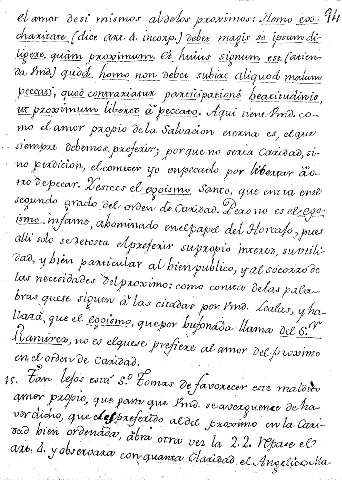 94
el amor desi mismos al delos proximos: Homo ex
charitate (dice art. 4. incorp.) debet magis se ipsum di-
ligere, quàm proximum et huius signum est (atien-
da Pmd.) quod homo non debet subire aliquod malum
peccati, quod contrarietur participationi beatitudinis
ut proximum liberet à peccato. Aqui tiene Pmd. co-
mo el amor propio dela Salvacion eterna es, el que
siempre debemos preferir; porque no seria Caridad, si-
no perdicion, el cometer yo unpecado por libertar à o-
tro depecar. Yeste es el egoismo Santo, que entra en el
segundo grado del orden de Caridad. Pero no es el ego-
ismo infame, abominado en el papel del Horcajo, pues
alli solo se detesta el preferir su propio interes, su utili-
dad, y bien particular al bien publico, y al socorro de
las necesidades del proximo: como consta de las pala-
bras que se siguen à las citadas por Pmd. Lealas, y ha-
llará, que el egoismo, que por bufonada llama del S.r
Ramirez, no es el que se prefiere al amor del proximo
en el orden de Caridad.
15. Tan lejos està S.to Tomas de favorecer este maldito
amor propio, que para que Pmd. se averguence de ha-
ver dicho, que es preferido al del proximo en la Cari-
dad bien ordenada, abra otra vez la 2.2. repase el
art. 4. y observarà con quanta Claridad el Angelico Ma-